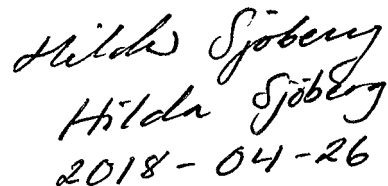 Hilda Sjöberg
Hilda Sjöberg
2018-04-26